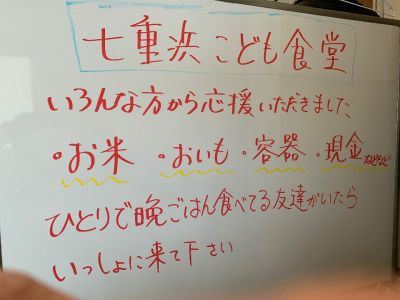 七重浜こども食堂
いろんな方から応援いただきました
・お米 ・おいも ・容器 ・現金などなど
ひとりで晩ごはん食べてる友達がいたら
いっしょに来て下さい